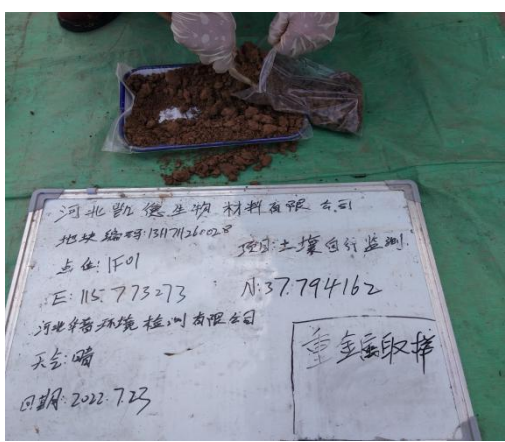 河北凯德生物材料有限公司
地块编码:1311711260028
项目:土壤自行监测
点位:1F01
E:115.773273
N:37.794162
河北华普环境检测有限公司
天气:晴
重金属取样
日期:2022.7.23